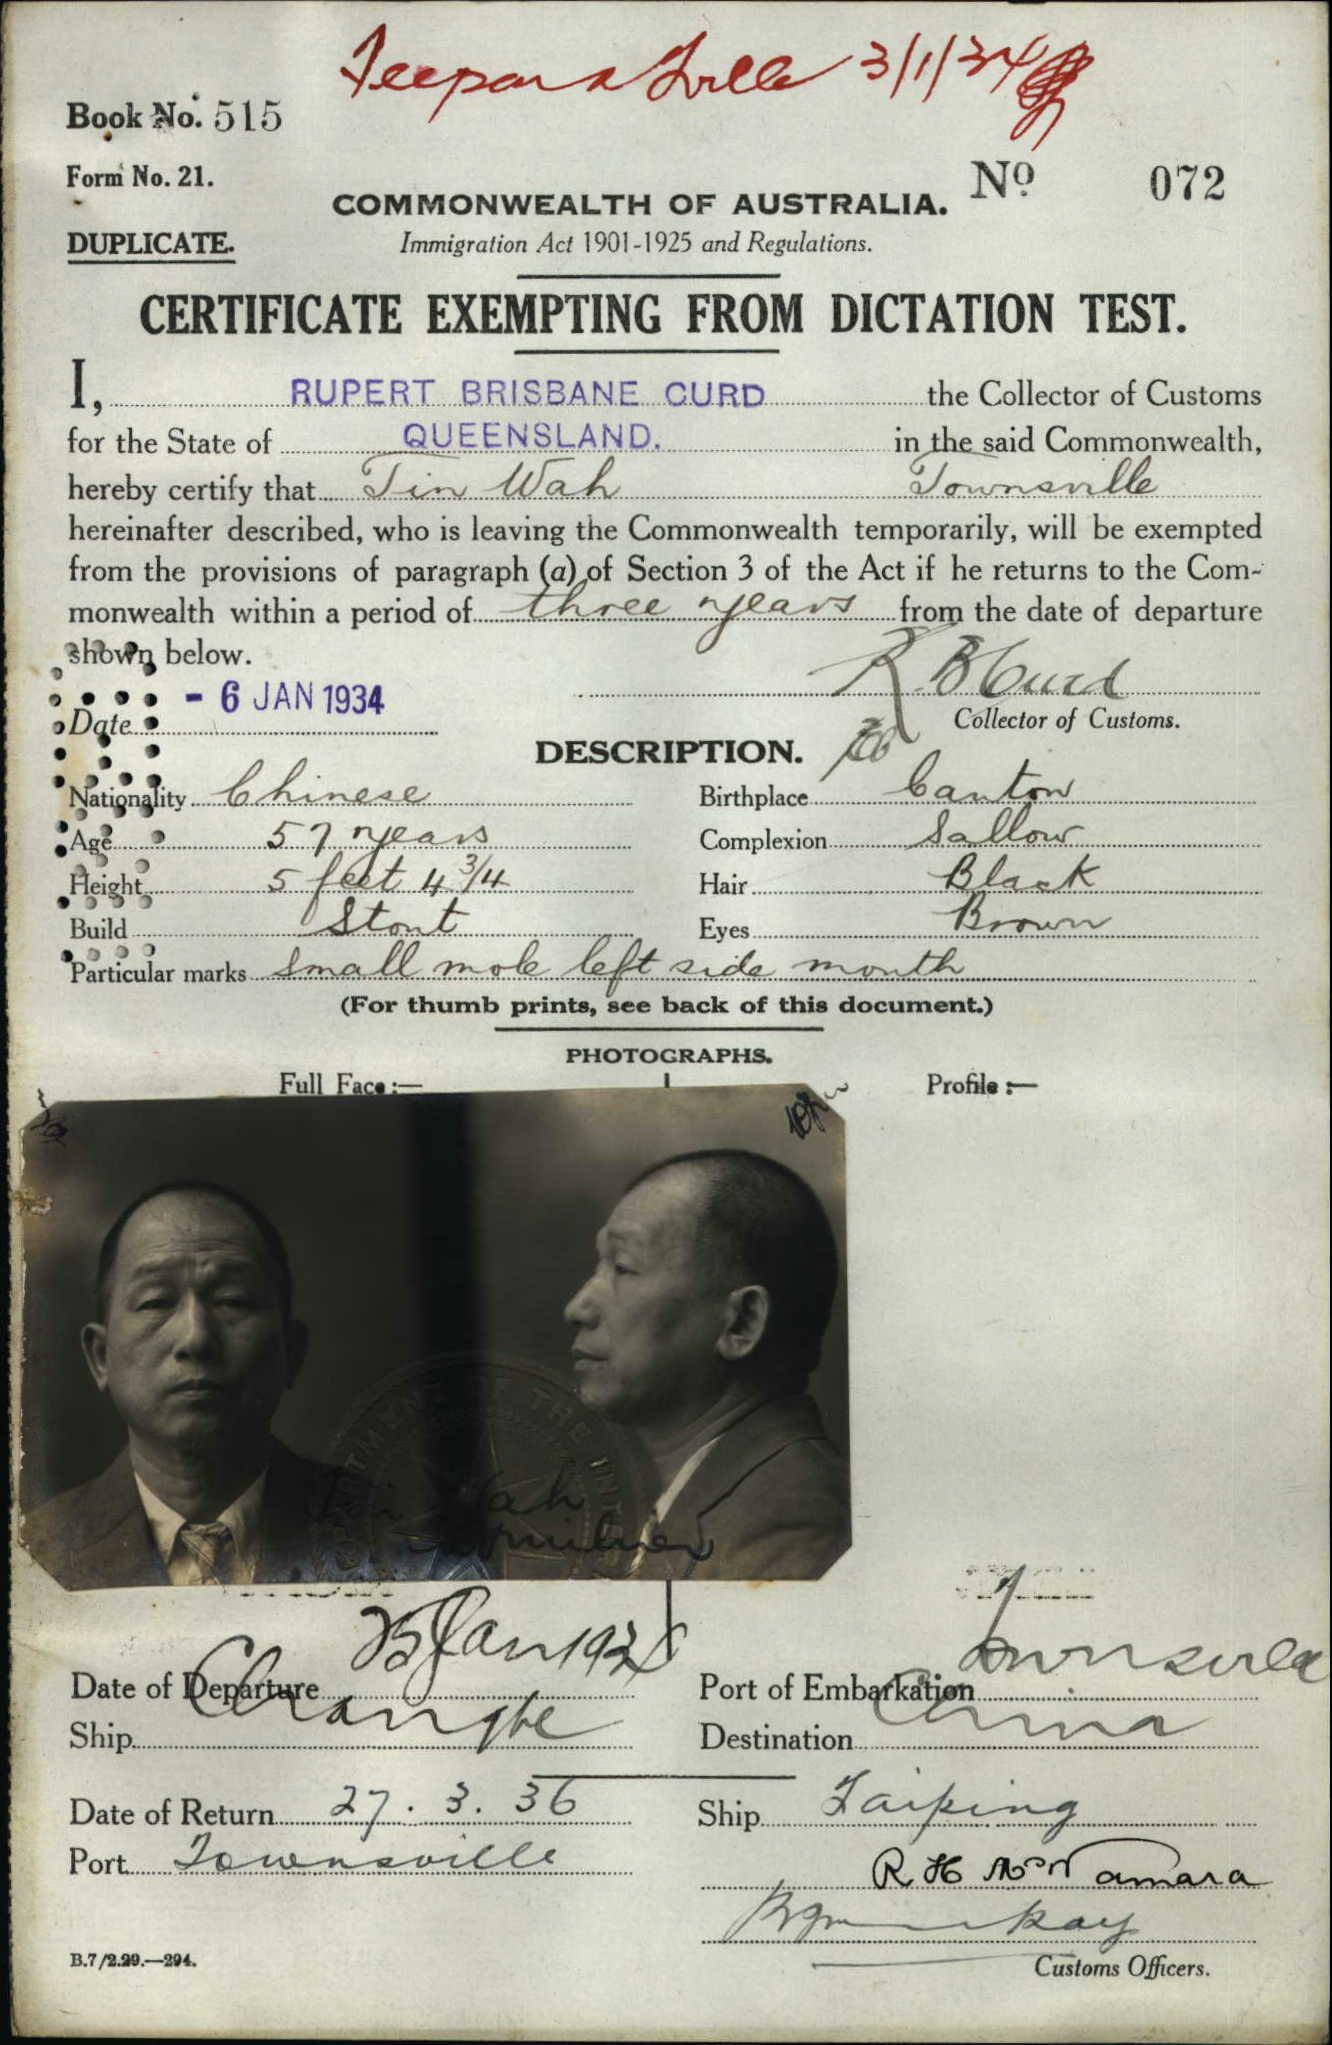 3/1/34
Book No. 515
Form No. 21.
No 072
COMMONWEALTH OF AUSTRALIA.
DUPLICATE.
Immigration Act 1901-1925 and Regulations.
CERTIFICATE EXEMPTING FROM DICTATION TEST.
I, RUPERT BRISBANE CURD the Collector of Customs
for the State of QUEENSLAND. in the said Commonwealth,
hereby certify that Tin Wah Townsville
hereinafter described, who is leaving the Commonwealth temporarily, will be exempted
from the provisions of paragraph (a) of Section 3 of the Act if he returns to the Com-
monwealth within a period of three years from the date of departure
shown below.
R B Curd
Date - 6 JAN 1934
Collector of Customs.
DESCRIPTION.
Nationality Chinese Birthplace Canton
Age 57 years Complexion Sallow
Height 5 feet 4 3/4 Hair Black
Build Stout Eyes Brown
Particular marks Small mole left side mouth
(For thumb prints, see back of this document.)
PHOTOGRAPHS.
Full Face :— Profile :—
DEPARTMENT OF THE INT
Wah
Date of Departure 25 Jan 1934 Port of Embarkation Townsville
Ship Changte Destination China
Date of Return 27. 3. 36 Ship Taiping
Port Townsville
R H McNamara
Customs Officers.
B.7/2.29.—294.